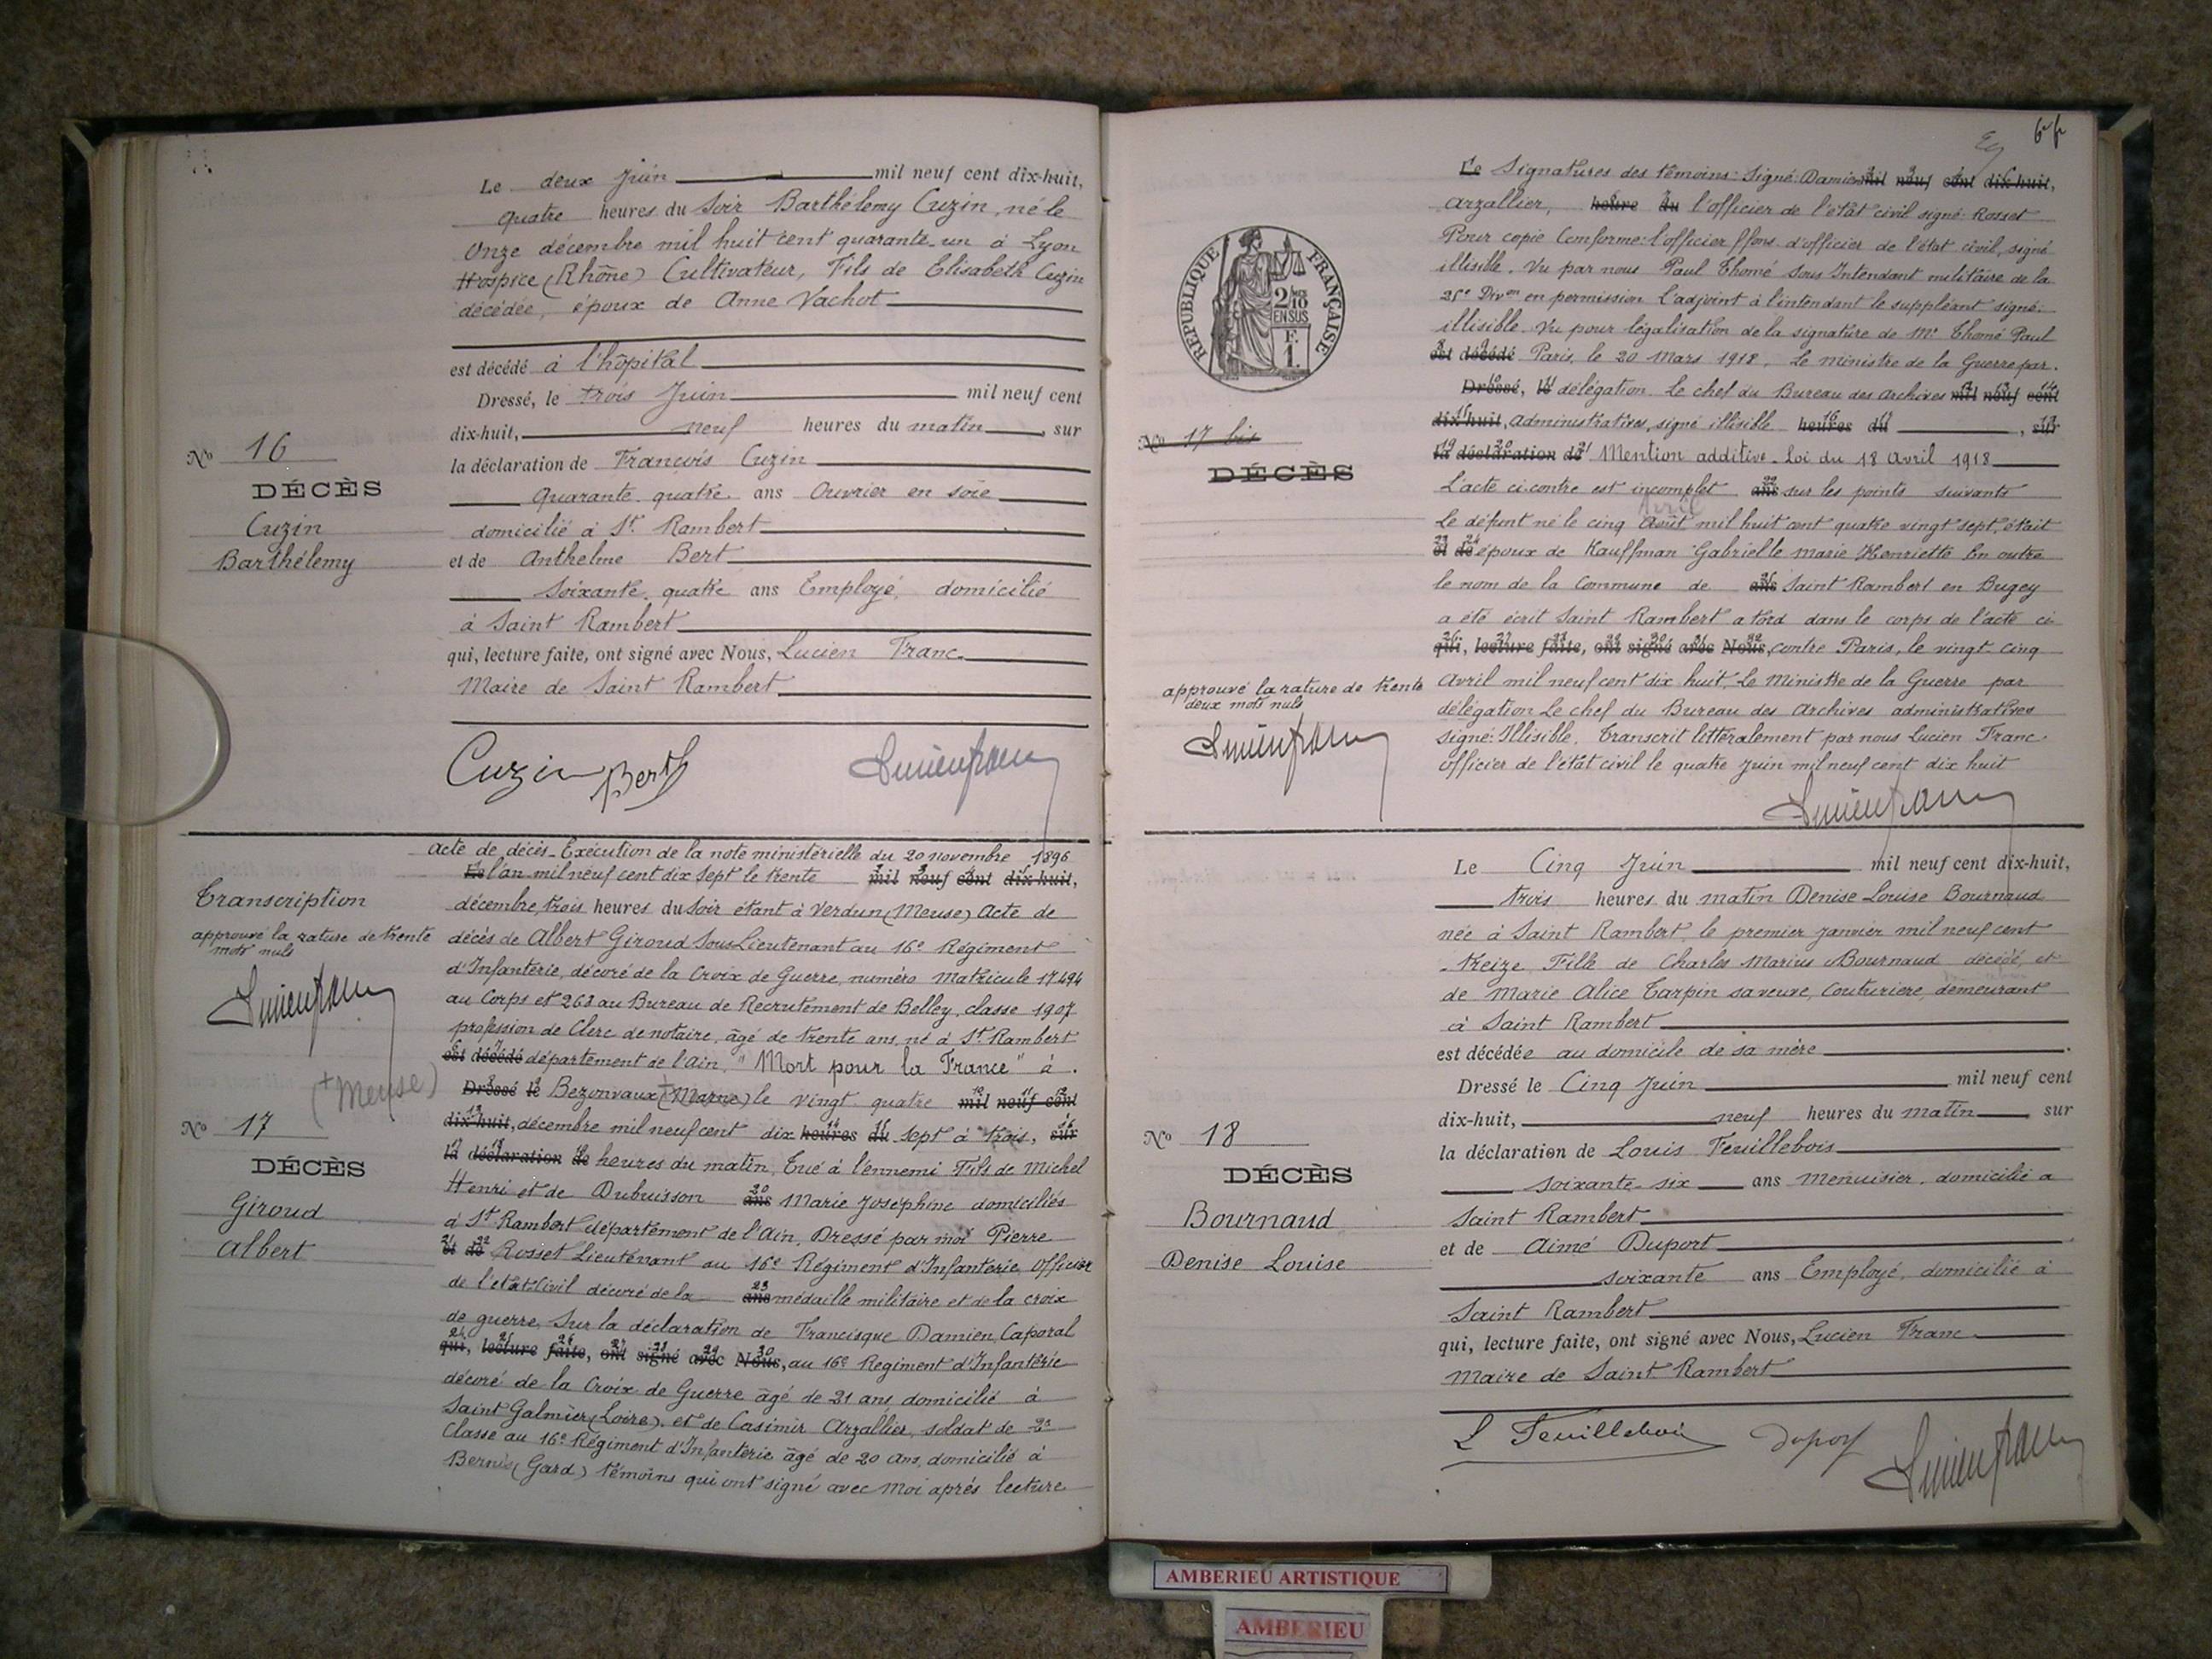 Le deux Juin mil neuf cent dix-huit,
quatre heures du Soir Barthélemy Cuzin, né le
Onze décembre mil huit cent quarante-un à Lyon
Hospice (Rhône) Cultivateur, Fils de Elisabeth Cuzin
décédée, époux de Anne Vachot
est décédé à l'hôpital
Dressé, le trois Juin mil neuf cent
dix-huit, neuf heures du matin, sur
la déclaration de François Cuzin
Quarante-quatre ans Ouvrier en soie
domicilié à St Rambert
et de Anthelme Bert
Soixante-quatre ans Employé, domicilié
à Saint Rambert
qui, lecture faite, ont signé avec Nous, Lucien Franc
Maire de Saint Rambert
No 16
DÉCÈS
Cuzin
Barthélemy
Cuzin Bert Lucien Franc
acte de décès_Exécution de la note ministérielle du 20 novembre 1896
Le l'an mil neuf cent dix sept le trente mil neuf cent dix-huit,
décembre, trois heures du Soir étant à Verdun (Meuse) Acte de
décès de Albert Giroud Sous Lieutenant au 16e Régiment
d'Infanterie, décoré de la Croix de Guerre, numéro Matricule 17494
au Corps et 263 au Bureau de Recrutement de Belley, classe 1907
profession de Clerc de notaire, âgé de trente ans, né à St Rambert
est décédé département de l'Ain, "Mort pour la France" à
Dressé le Bezonvaux (Marne) le vingt quatre mil neuf cent
dix-huit, décembre mil neuf cent dix heures du sept à trois, sur
la déclaration de heures du matin, Tué à l'ennemi Fils de Michel
Henri et de Dubuisson ans Marie Joséphine domiciliés
à St Rambert département de l'Ain, Dressé par moi Pierre
et de Rosset Lieutenant au 16e Régiment d'Infanterie Officier
de l'état Civil décoré de la ans médaille militaire et de la croix
de guerre, Sur la déclaration de Francisque Damien, Caporal
qui, lecture faite, ont signé avec Nous, au 16e Regiment d'Infanterie
décoré de la Croix de Guerre âgé de 21 ans, domicilié à
Saint Galmier (Loire), et de Casimir Arzallier, soldat de 2e
Classe au 16e Régiment d'Infanterie âgé de 20 ans, domicilié à
Bernis (Gard) témoins qui ont signé avec moi après lecture
Transcription
approuvé la rature de trente
mots nuls
Lucien Franc
(+ Meuse)
No 17
DÉCÈS
Giroud
Albert
Le Signatures des témoins: Signé: Damien mil neuf cent dix-huit,
Arzallier, heure du l'officier de l'état civil signé: Rosset
Pour copie Conforme: l'officier ffons d'officier de l'état civil, signé
illisible. Vu par nous Paul Thomé Sous Intendant militaire de la
25e Divon en permission l'adjoint à l'intendant le suppléant signé:
illisible. Vu pour légalisation de la signature de Mr Thomé Paul
est décédé Paris, le 20 Mars 1918. Le ministre de la Guerre par
Dressé, le délégation Le chef du Bureau des Archives mil neuf cent
dix-huit, Administratives, signé illisible heures du, sur
la déclaration de Mention additive_Loi du 18 Avril 1918
L'acte ci-contre est incomplet ans sur les points suivants
Le défunt né le cinq Août mil huit cent quatre vingt sept, était
Avril
et de époux de Kauffman Gabrielle Marie Henriette En outre
le nom de la Commune de ans Saint Rambert en Bugey
a été écrit Saint Rambert a tord dans le corps de l'acte ci
qui, lecture faite, ont signé avec Nous, contre Paris, le vingt-cinq
Avril mil neuf cent dix huit, Le Ministre de la Guerre par
délégation Le chef du Bureau des Archives administratives
signé: Illisible. Transcrit littéralement par nous Lucien Franc
Officier de l'état civil le quatre Juin mil neuf cent dix huit
Lucien Franc
RÉPUBLIQUE FRANÇAISE
2/10
EN SUS
F.
1.
No 17 bis
DÉCÈS
approuvé la rature de trente
deux mots nuls
Lucien Franc
Le Cinq Juin mil neuf cent dix-huit,
trois heures du matin Denise Louise Bournaud
née à Saint Rambert, le premier janvier mil neuf cent
treize, Fille de Charles Marius Bournaud décédé, et
de Marie Alice Tarpin sa veuve, Couturière, demeurant
à Saint Rambert
est décédée au domicile de sa mère
Dressé le Cinq Juin mil neuf cent
dix-huit, neuf heures du matin, sur
la déclaration de Louis Feuillebois
soixante-six ans Menuisier, domicilié a
Saint Rambert
et de Aimé Duport
soixante ans Employé, domicilié à
Saint Rambert
qui, lecture faite, ont signé avec Nous, Lucien Franc
Maire de Saint Rambert
No 18
DÉCÈS
Bournaud
Denise Louise
L Feuillebois Lucien Franc
AMBERIEU ARTISTIQUE
AMBERIEU